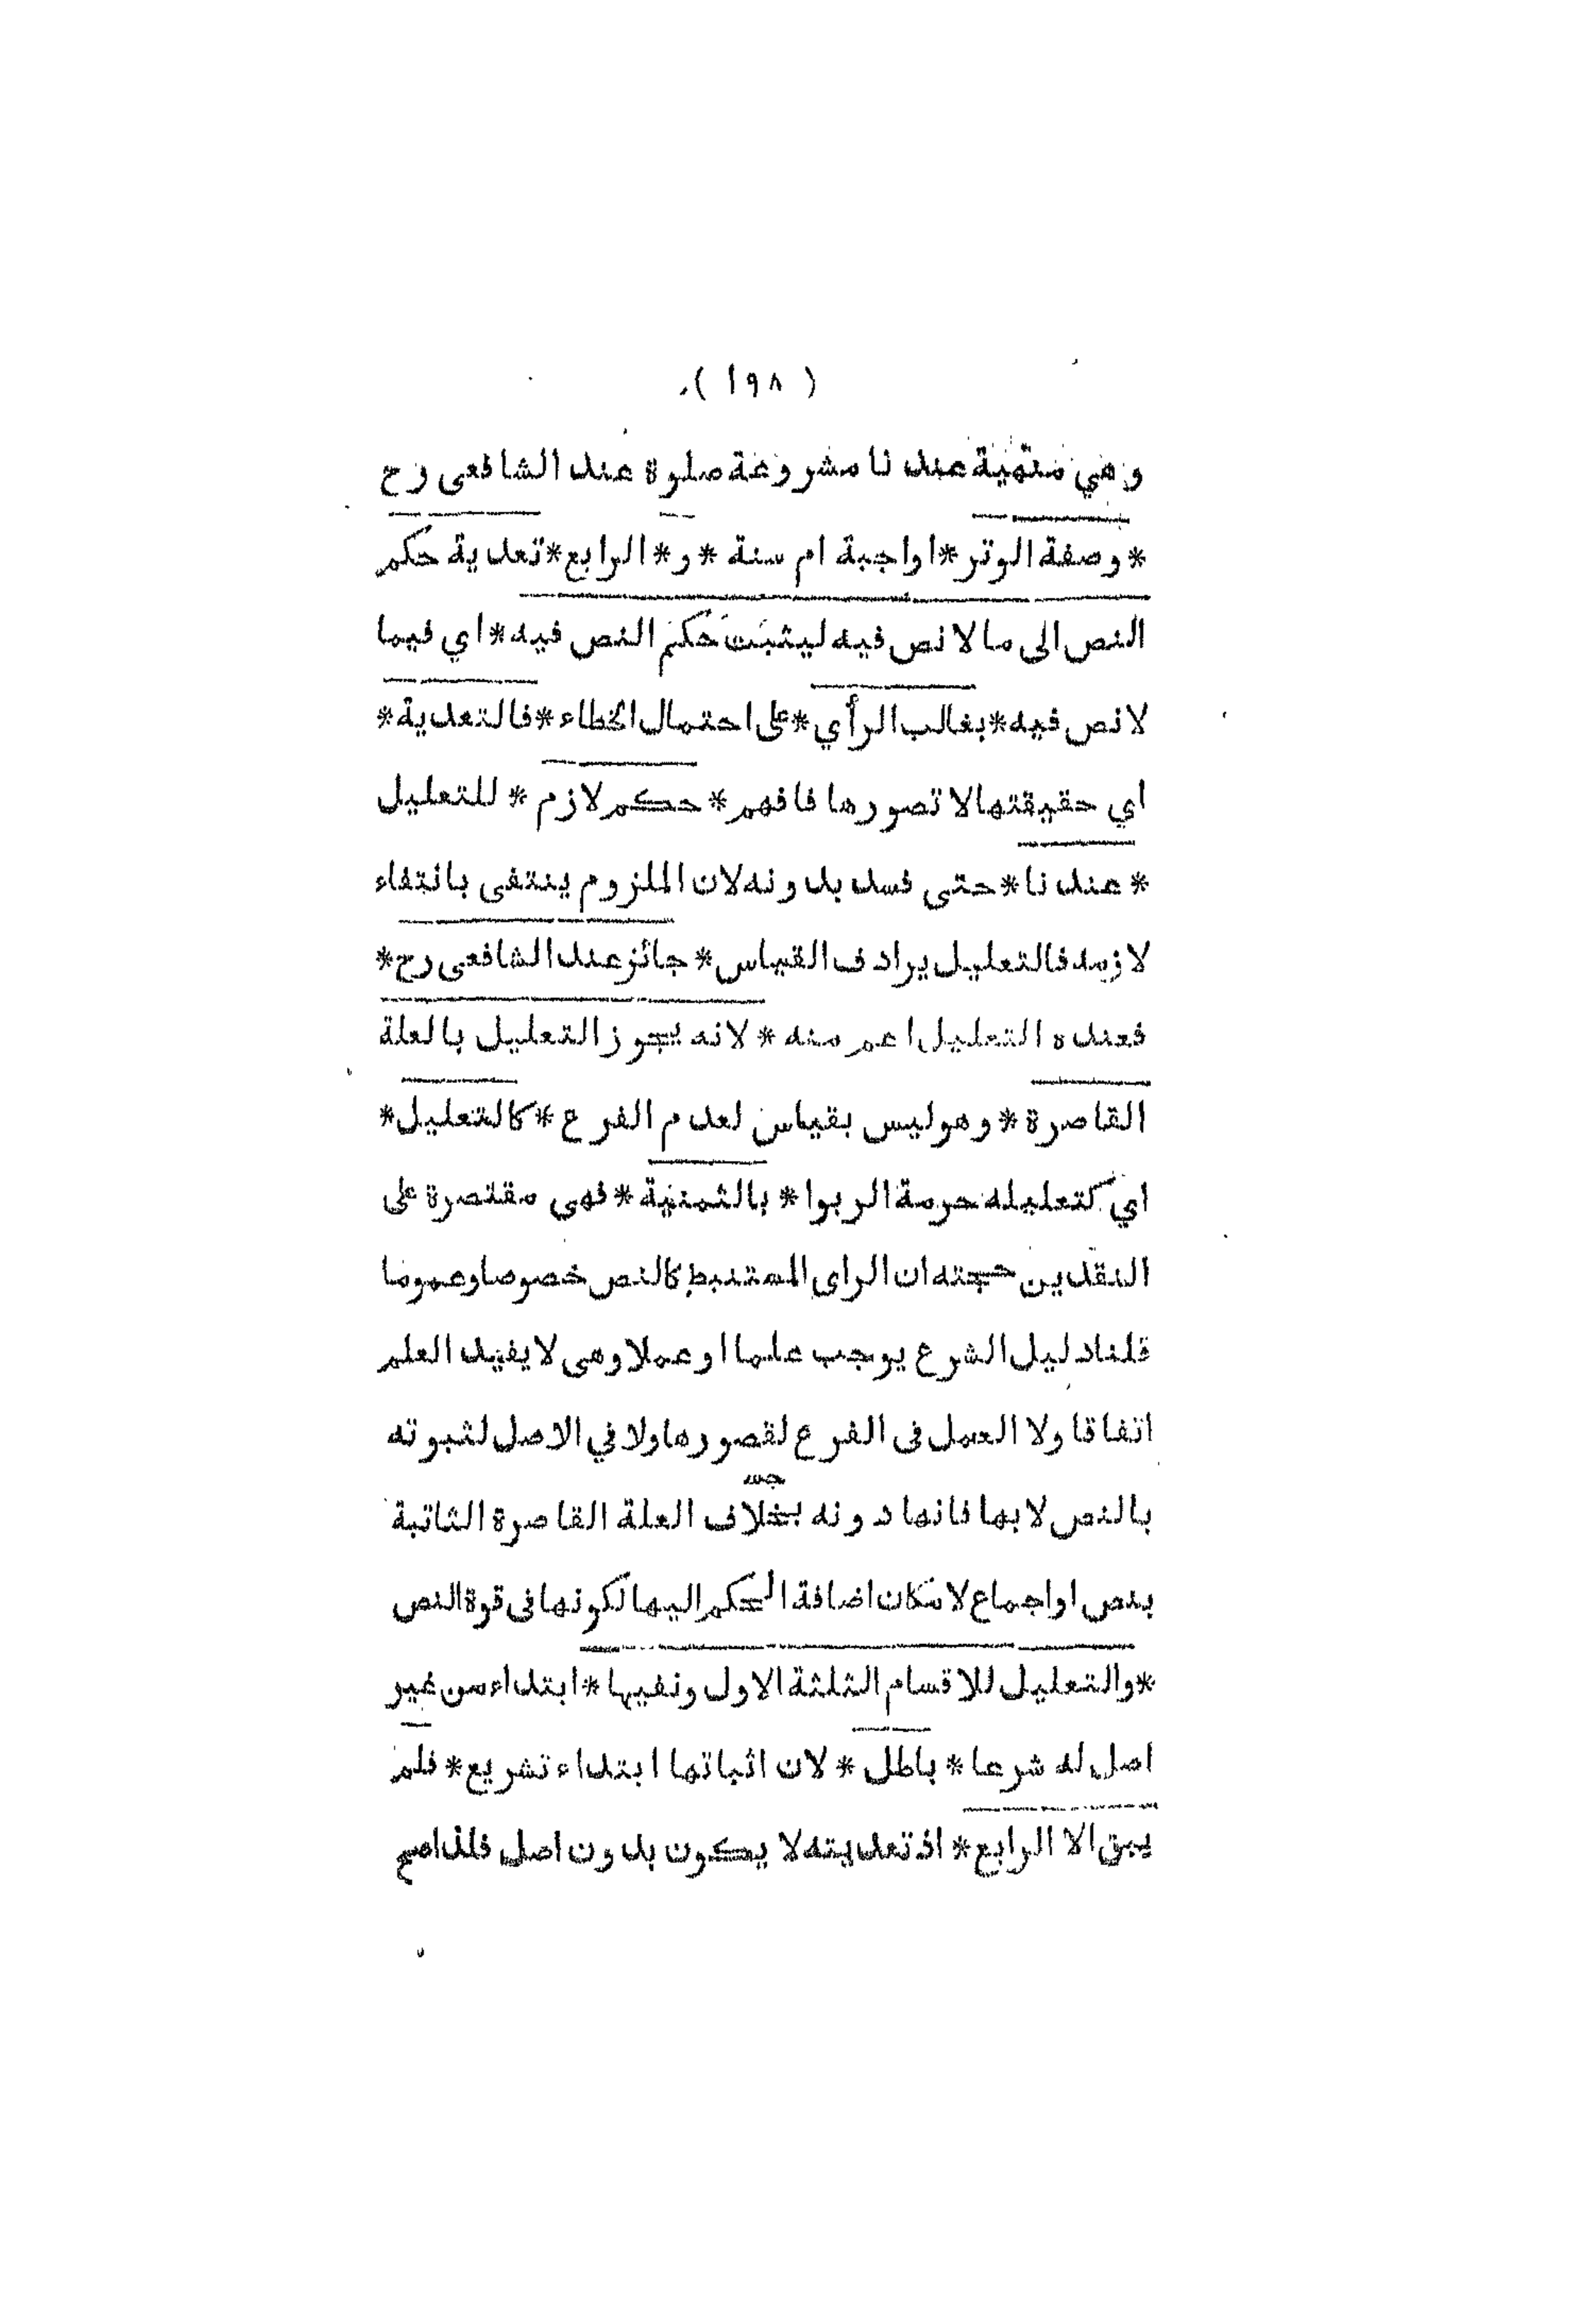 ( ١٩٨ )
وهي منهية عندنا مشروعة صلوة عند الشافعى رح
*وصفة الوتر*اواجبة ام سنة *و* الرابع*تعدية حكم
النص الى ما لا نص فيه ليثبت حكم النص فيه*اي فيما
لا نص فيه*بغالب الرأي*على احتمال الخطاء*فالتعدية*
اي حقيقتها لا تصورها فافهم*حكم لازم* للتعليل
*عندنا*حتى فسد بدونه لان الملزوم ينتفى بانتفاء
لازمه فالتعليل يرادف القياس*جائز عند الشافعى رح*
فعنده التعليل اعم منه*لانه يجوز التعليل بالعلة
القاصرة*وهو ليس بقياس لعدم الفرع*كالتعليل*
اي كتعليله حرمة الربوا*بالثمنية*فهى مقتصرة على
النقدين حجته ان الراى المستنبط كالنص خصوصا وعموما
قلنا دليل الشرع يوجب علما او عملا وهى لا يفيد العلم
اتفاقا ولا العمل فى الفرع لقصورها ولا في الاصل لثبوته
بالنص لا بها فانها دونه بخلاف العلة القاصرة الثابتة
بنص او اجماع لامكان اضافة الحكم اليها لكونها فى قوة النص
*والتعليل للاقسام الثلثة الاول ونفيها*ابتداء من غير
اصل له شرعا*باطل*لان اثباتها ابتداء تشريع*فلم
يبق الا الرابع*اذ تعديته لا يكون بدون اصل فلذا صح